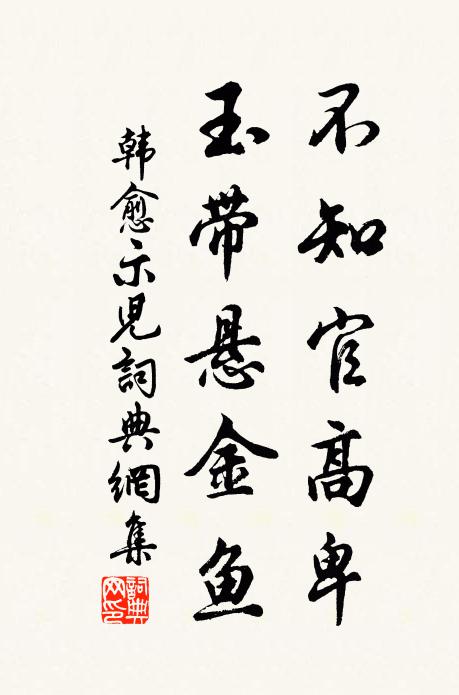 不知官高卑
玉带悬金鱼
韩愈示児詞典網集
詞典网印